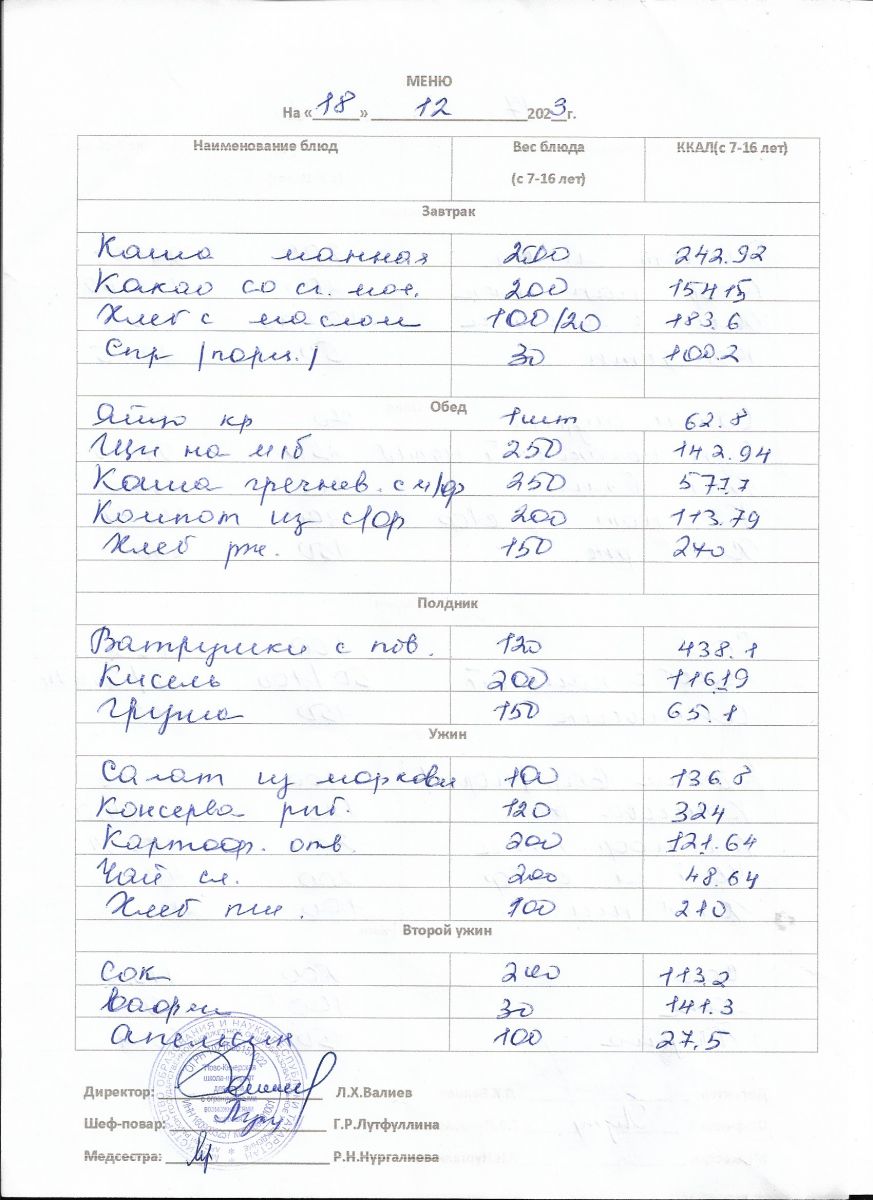 МЕНЮ
На «18» 12 2023г.
Наименование блюд Вес блюда (с 7-16 лет) ККАЛ(с 7-16 лет)
Завтрак
Каша манная 200 242.92
Какао со сг. мол. 200 154.15
Хлеб с маслом 100/20 183.6
Сыр /порц./ 30 100.2
Обед
Яйцо кр 1шт 62.8
Щи на м/б 250 142.94
Каша гречнев. с м/ф 250 577.7
Компот из с/фр 200 113.79
Хлеб рж. 150 240
Полдник
Ватрушки с пов. 120 438.1
Кисель 200 116.19
Груша 150 65.1
Ужин
Салат из моркови 100 136.8
Консерва рыб. 120 324
Картоф. отв. 200 121.64
Чай сл. 200 48.64
Хлеб пш. 100 210
Второй ужин
Сок 200 113.2
Вафли 30 141.3
Апельсин 100 27.5
Директор: Л.Х.Валиев
Шеф-повар: Г.Р.Лутфуллина
Медсестра: Р.Н.Нургалиева